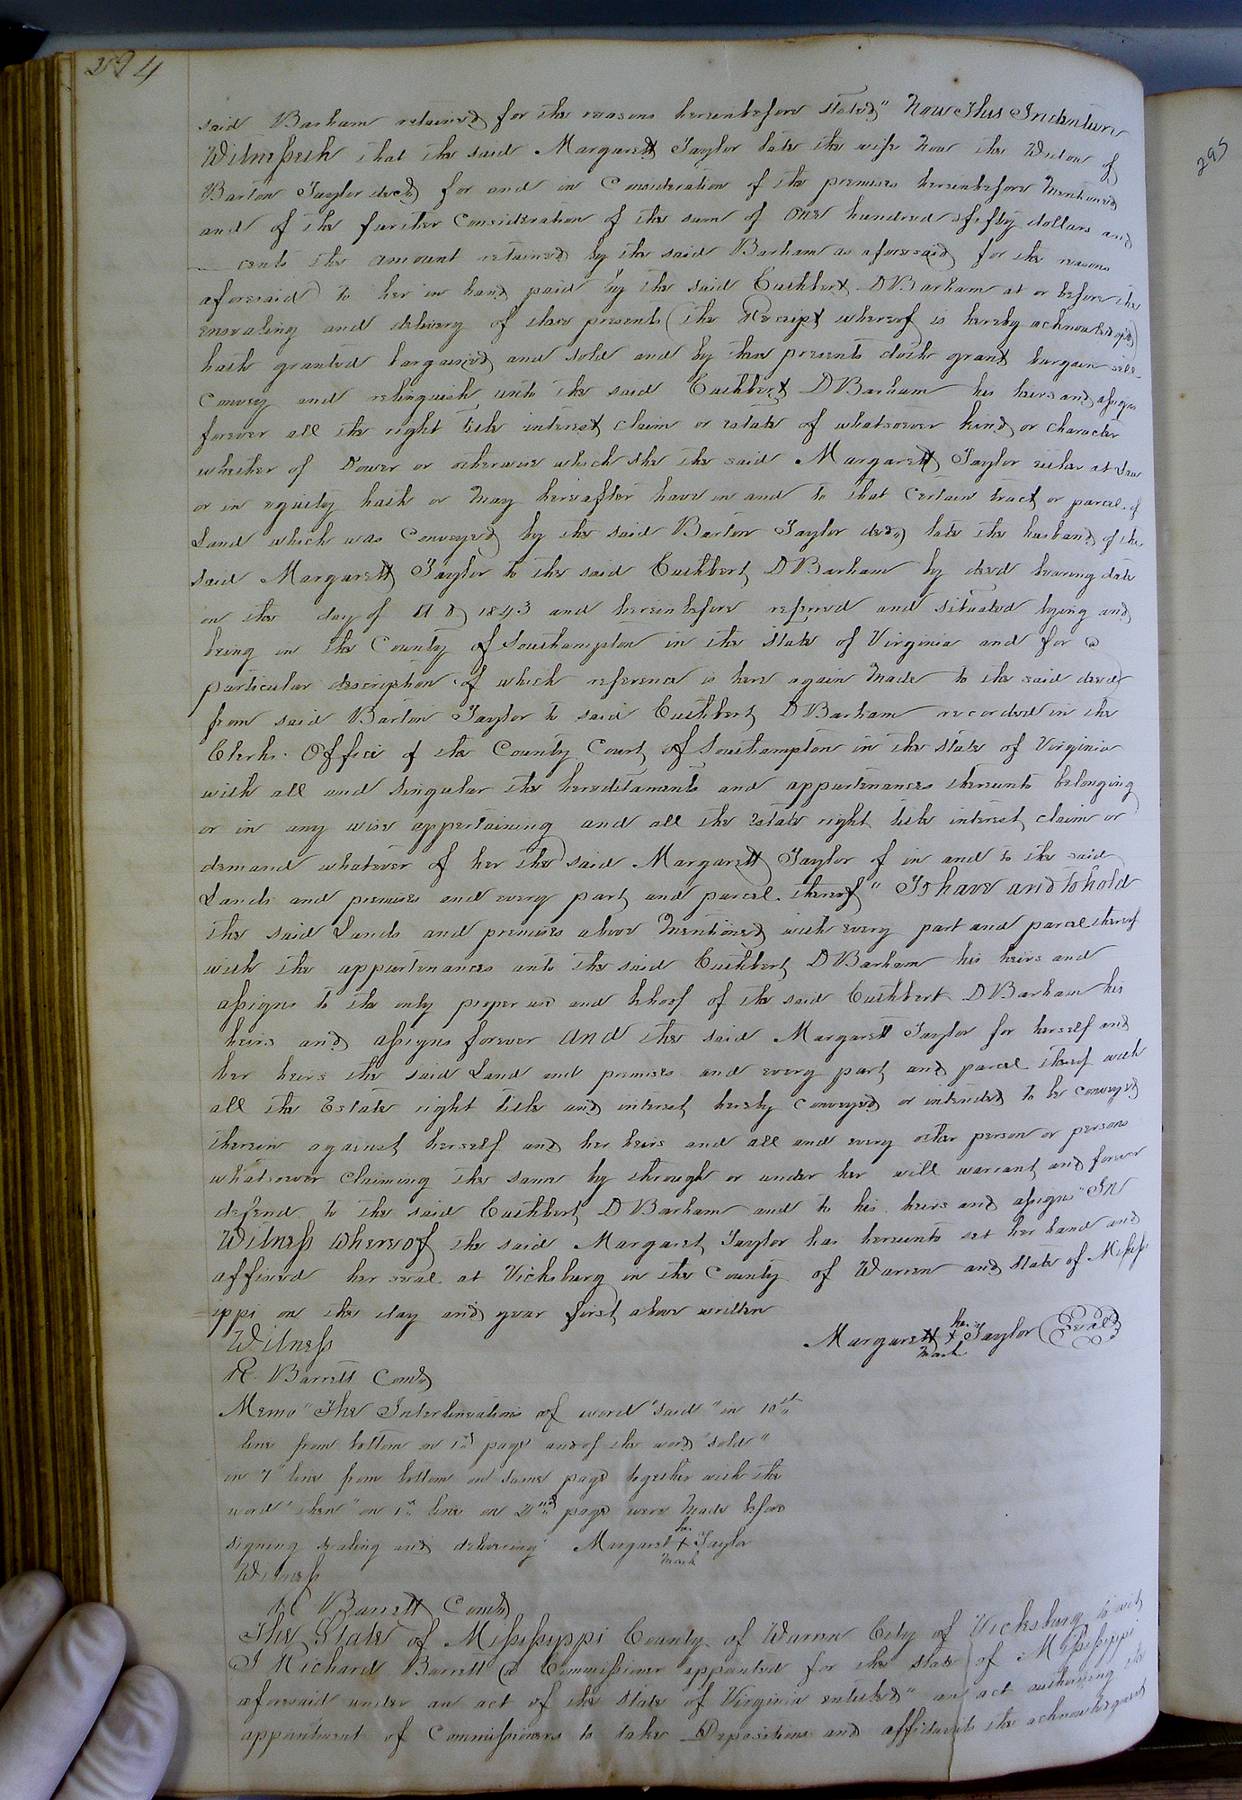 294
said Barham retained for the reasons hereinbefore stated" Now This Indenture
Witnesseth that the said Margarett Taylor late the wife now the Widow of
Barton Taylor decd for and in Consideration of the premises hereinbefore Mentioned
and of the further Consideration of the sum of One hundred & fifty dollars and
— cents the amount retained by the said Barham as aforesaid for the reasons
aforesaid) to her in hand paid by the said Cuthbert D Barham at or before the
ensealing and delivery of these presents (the Receipt whereof is hereby acknowledged)
hath granted bargained and sold and by these presents doth grant bargain sell
Convey and relinquish unto the said Cuthbert D Barham his heirs and assigns
forever all the right title interest claim or estate of whatsoever kind or character
whether of Dower or otherwise which she the said Margarett Taylor either at Law
or in equity hath or May hereafter have in and to that Certain tract or parcel of
Land which was Conveyed by the said Barton Taylor decd, late the husband of the
said Margarett Taylor to the said Cuthbert D Barham by deed bearing date
on the day of A D 1843 and hereinbefore referred and situated lying and
being in the County of Southampton in the State of Virginia and for a
particular description of which reference is here again Made to the said deed
from said Barton Taylor to said Cuthbert D Barham recorded in the
Clerks Office of the County Court of Southampton in the state of Virginia
with all and singular the hereditaments and appurtenances thereunto belonging
or in any wise appertaining and all the estate right title interest claim or
demand whatever of her the said Margarett Taylor of in and to the said
Lands and premises and every part and parcel thereof" To have and to hold
the said Lands and premises above Mentioned with every part and parcel thereof
with the appurtenances unto the said Cuthbert D Barham his heirs and
assigns to the only proper use and behoof of the said Cuthbert D Barham his
heirs and assigns forever And the said Margarett Taylor for herself and
her heirs the said Land and premises and every part and parcel thereof with
all the Estate right title and interest hereby Conveyed or intended to be conveyed
therein against herself and her heirs and all and every other person or persons
whatsoever Claiming the same by through or under her will warrant and forever
defend to the said Cuthbert D Barham and to his heirs and assigns" In
Witness whereof the said Margaret Taylor has hereunto set her hand and
affixed her seal at Vicksburg in the County of Warren and State of Missis
ippi on the day and year first above written
Witness
Margarett her X mark Taylor (Seal)
R. Barrett Comd
Memo" The Interlineations of word "said" in 10th
line from bottom on 1st page and of the word "sold"
on 7" line from bottom on same page together with the
word "then" on 1st line on 2nd page were Made before
signing sealing and delivering" Margaret her X mark Taylor
Witness
R Barrett Comd
The State of Mississippi County of Warren City of Vicksburg to wit
I Richard Barrett a Commissioner appointed for the State of Mississippi
aforesaid under an act of the State of Virginia entitled "an act authorising the
appointment of Commissioners to take Depositions and affidavits the acknowledgment
295